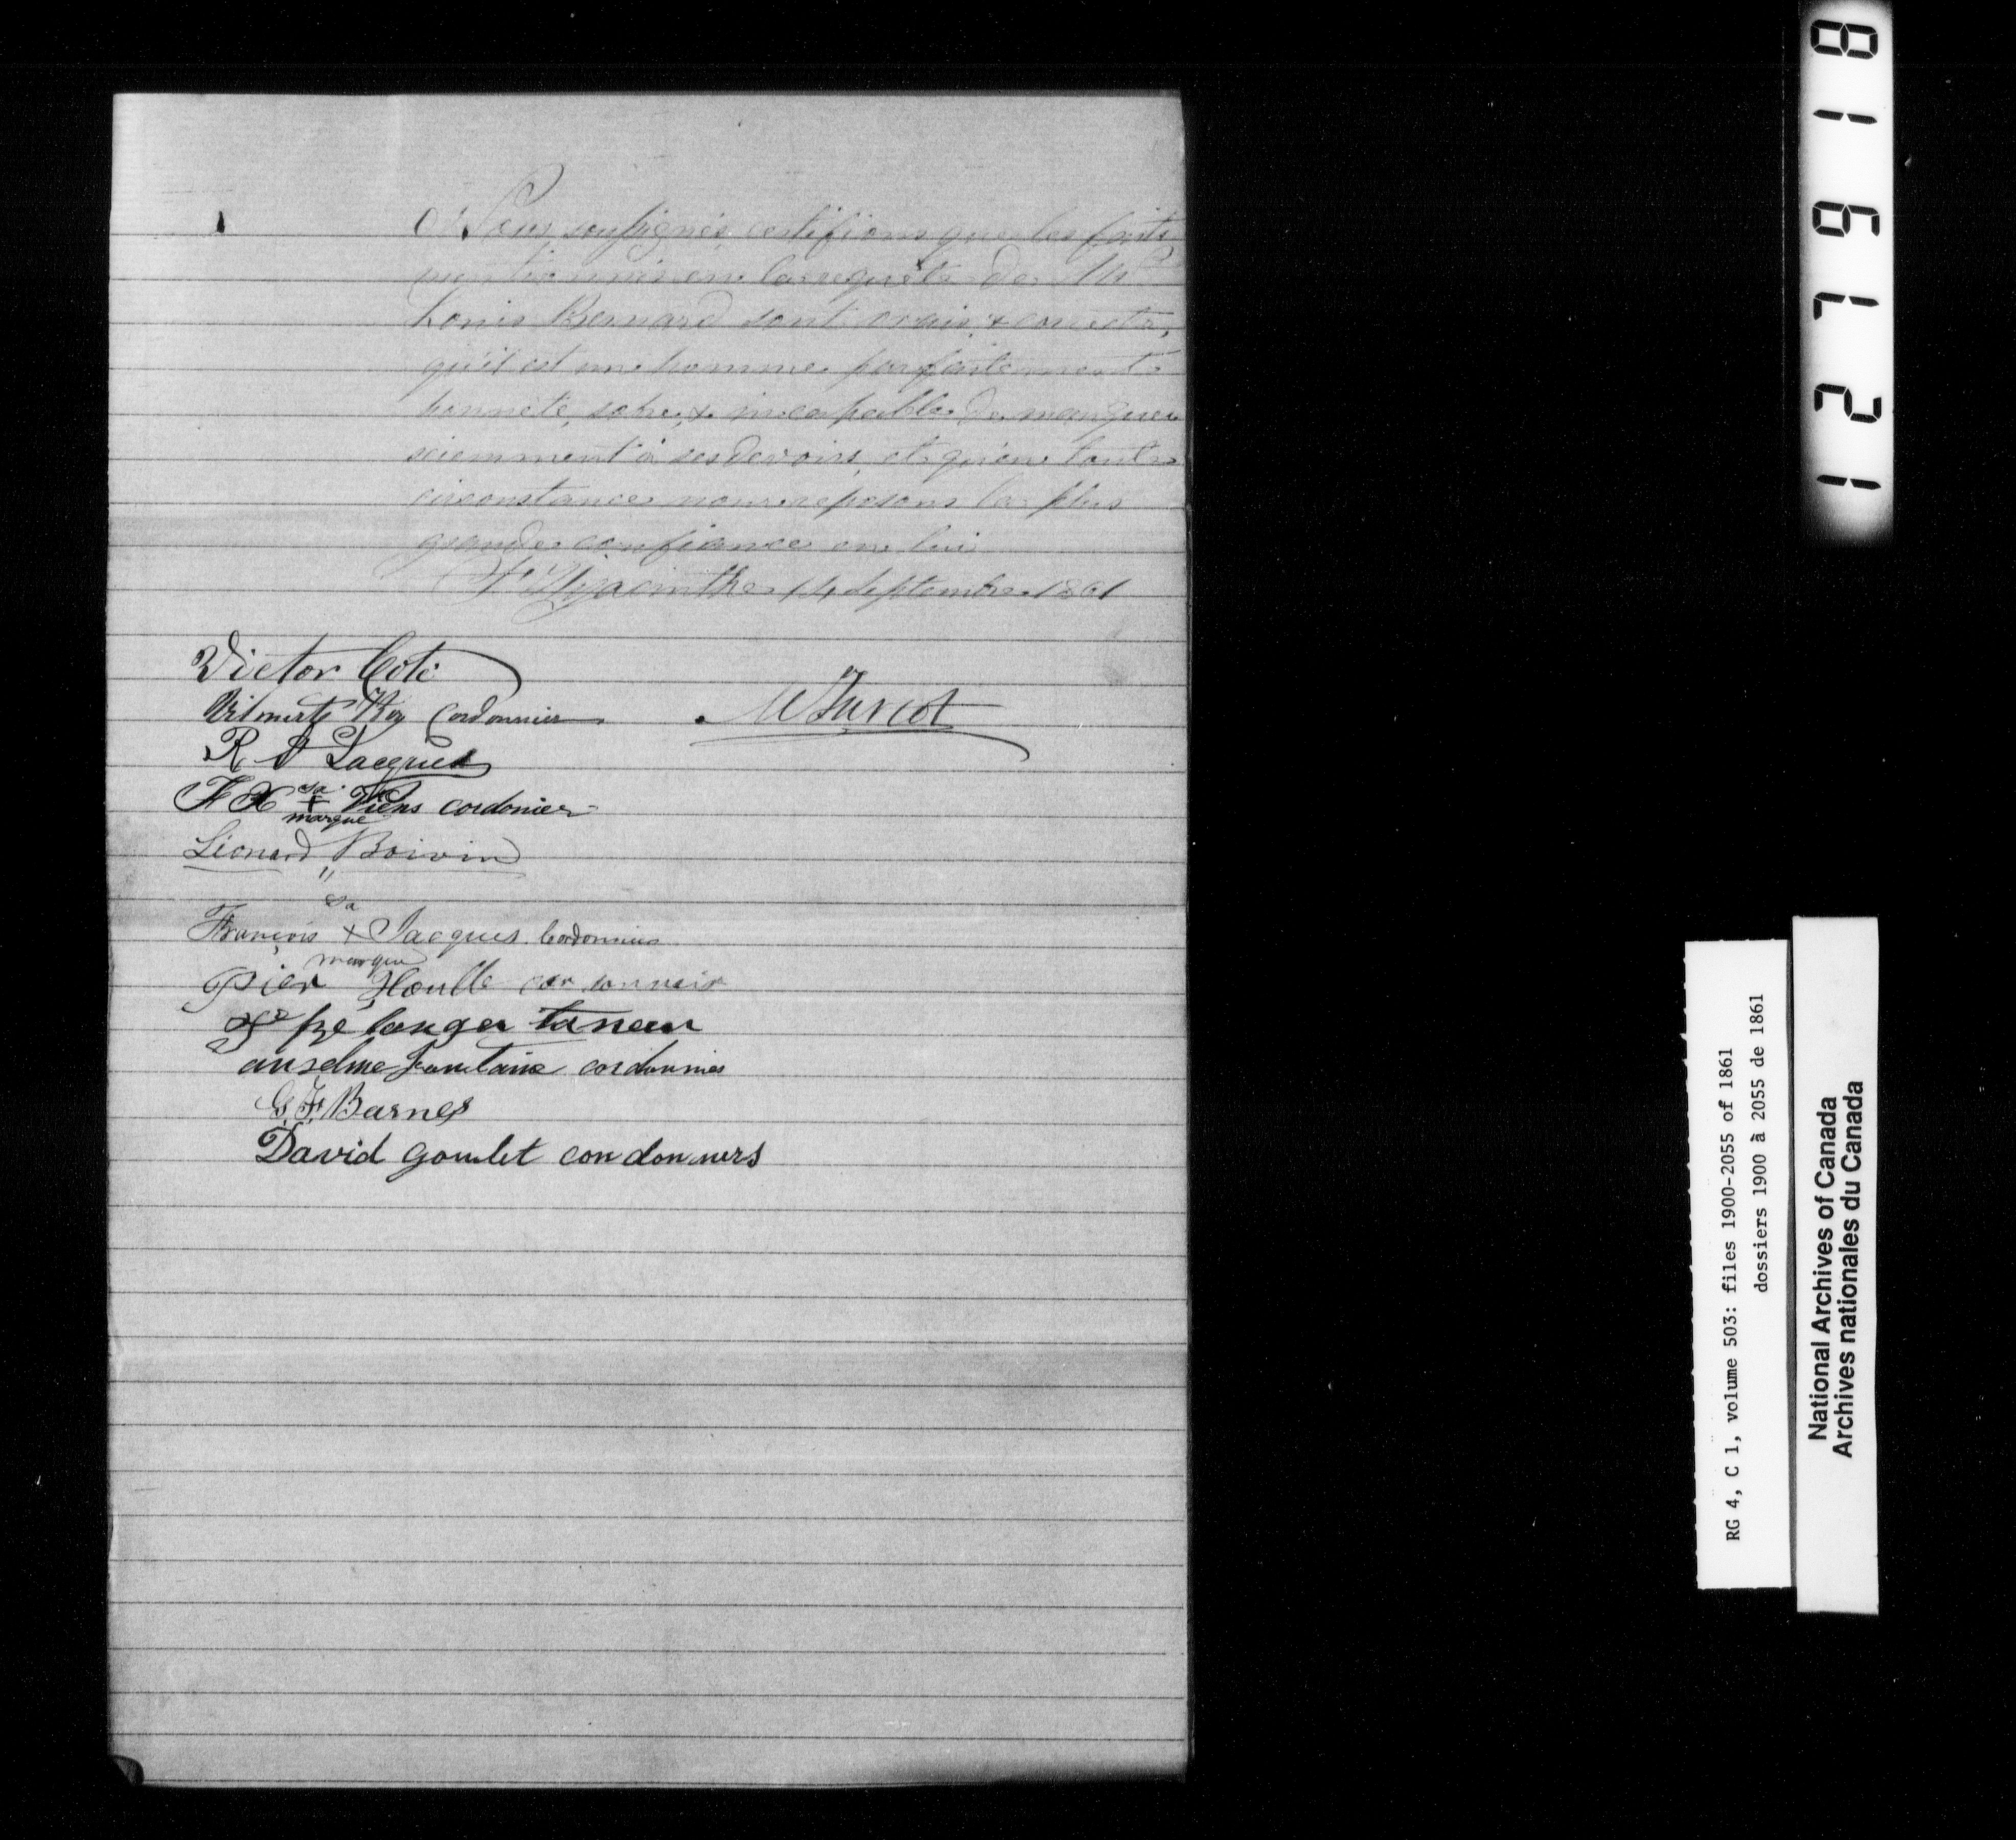 Nous, soussignés, certifions que les faits
mentionnés en la requête de Mr
Louis Bernard sont vrais & corrects,
qu'il est un homme parfaitement
honnête, sobre, & incapable de manquer
sciemment à ses devoirs, et qu'en toutes
circonstances nous reposons la plus
grande confiance en lui
St Hyacinthe 14 septembre 1861
Victor Coté
Roy Cordonnier
M Turcot
R A Jacques
F X sa + marque Viens cordonier
Léonard Boivin
François sa + marque Jacques Cordonnier
Pier Houlle cordonneir
belanger taneur
anselme fontaine cordonnier
G. F. Barnes
David goulet condonners
127918
RG 4, C 1, volume 503: files 1900-2055 of 1861
dossiers 1900 à 2055 de 1861
National Archives of Canada
Archives nationales du Canada